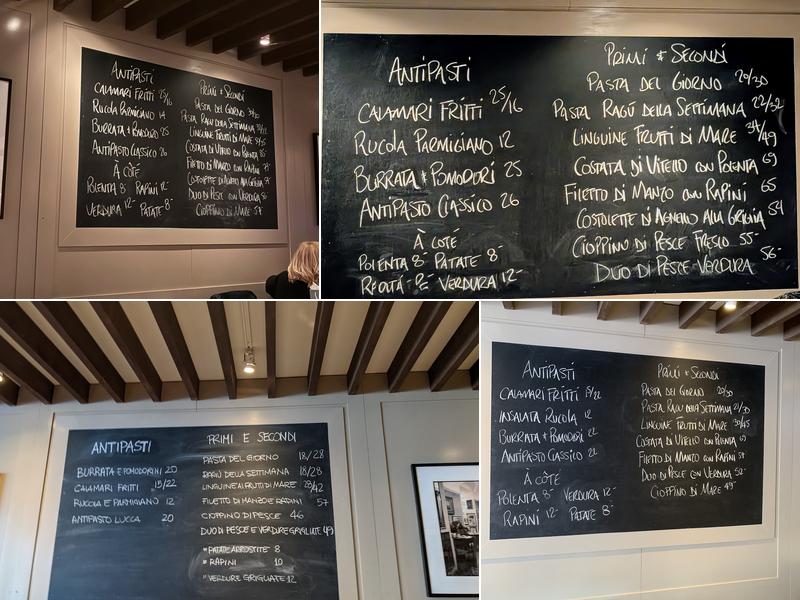 ANTIPASTI
CALAMARI FRITTI 25/16
RUCOLA PARMIGIANO 14
BURRATA + POMODORI 25
ANTIPASTO CLASSICO 26
À CÔTÉ
POLENTA 8- RAPINI 12-
VERDURA 12- PATATE 8-
PRIMI + SECONDI
PASTA DEL GIORNO
PASTA RAGÙ DELLA SETTIMANA
LINGUINE FRUTTI DI MARE
COSTATA DI VITELLO CON POLENTA
FILETTO DI MANZO CON RAPINI
COSTOLETTE DI AGNELLO ALLA GRIGLIA
DUO DI PESCE CON VERDURA
CIOPPINO DI MARE 54-
ANTIPASTI
CALAMARI FRITTI 25/16
RUCOLA PARMIGIANO 12
BURRATA + POMODORI 25
ANTIPASTO CLASSICO 26
À COTÉ
POLENTA 8- PATATE 8-
VERDURA 12-
PRIMI + SECONDI
PASTA DEL GIORNO 20/30
PASTA RAGÚ DELLA SETTIMANA 22/32
LINGUINE FRUTTI DI MARE 34/49
COSTATA DI VITELLO CON POLENTA 69
FILETTO DI MANZO CON RAPINI 65
COSTOLETTE DI AGNELLO ALLA GRIGLIA 54
CIOPPINO DI PESCE FRESCO 55-
DUO DI PESCE VERDURA 56-
ANTIPASTI
BURRATA E POMODORINI 20
CALAMARI FRITTI 15/22
RUCOLA E PARMIGIANO 12
ANTIPASTO LUCCA 20
PRIMI E SECONDI
PASTA DEL GIORNO 18/28
RAGÙ DELLA SETTIMANA 18/28
LINGUINE AI FRUTTI DI MARE 29/42
FILETTO DI MANZO E RAPINI 57
CIOPPINO DI PESCE 46
DUO DI PESCE E VERDURE GRIGLIATE 49
*PATATE ARROSTITE 8
*RAPINI 10
*VERDURE GRIGLIATE 12
ANTIPASTI
CALAMARI FRITTI 15/22
INSALATA RUCOLA 12
BURRATA + POMODORI 22
ANTIPASTO CLASSICO 22
À CÔTÉ
POLENTA 8- VERDURA 12-
RAPINI 12- PATATE 8-
PRIMI + SECONDI
PASTA DEL GIORNO 20/30
PASTA RAGU DELLA SETTIMANA 21/30
LINGUINE FRUTTI DI MARE 30/45
COSTATA DI VITELLO CON POLENTA
FILETTO DI MANZO CON RAPINI
DUO DI PESCE CON VERDURA 52-
CIOPPINO DI MARE 49-